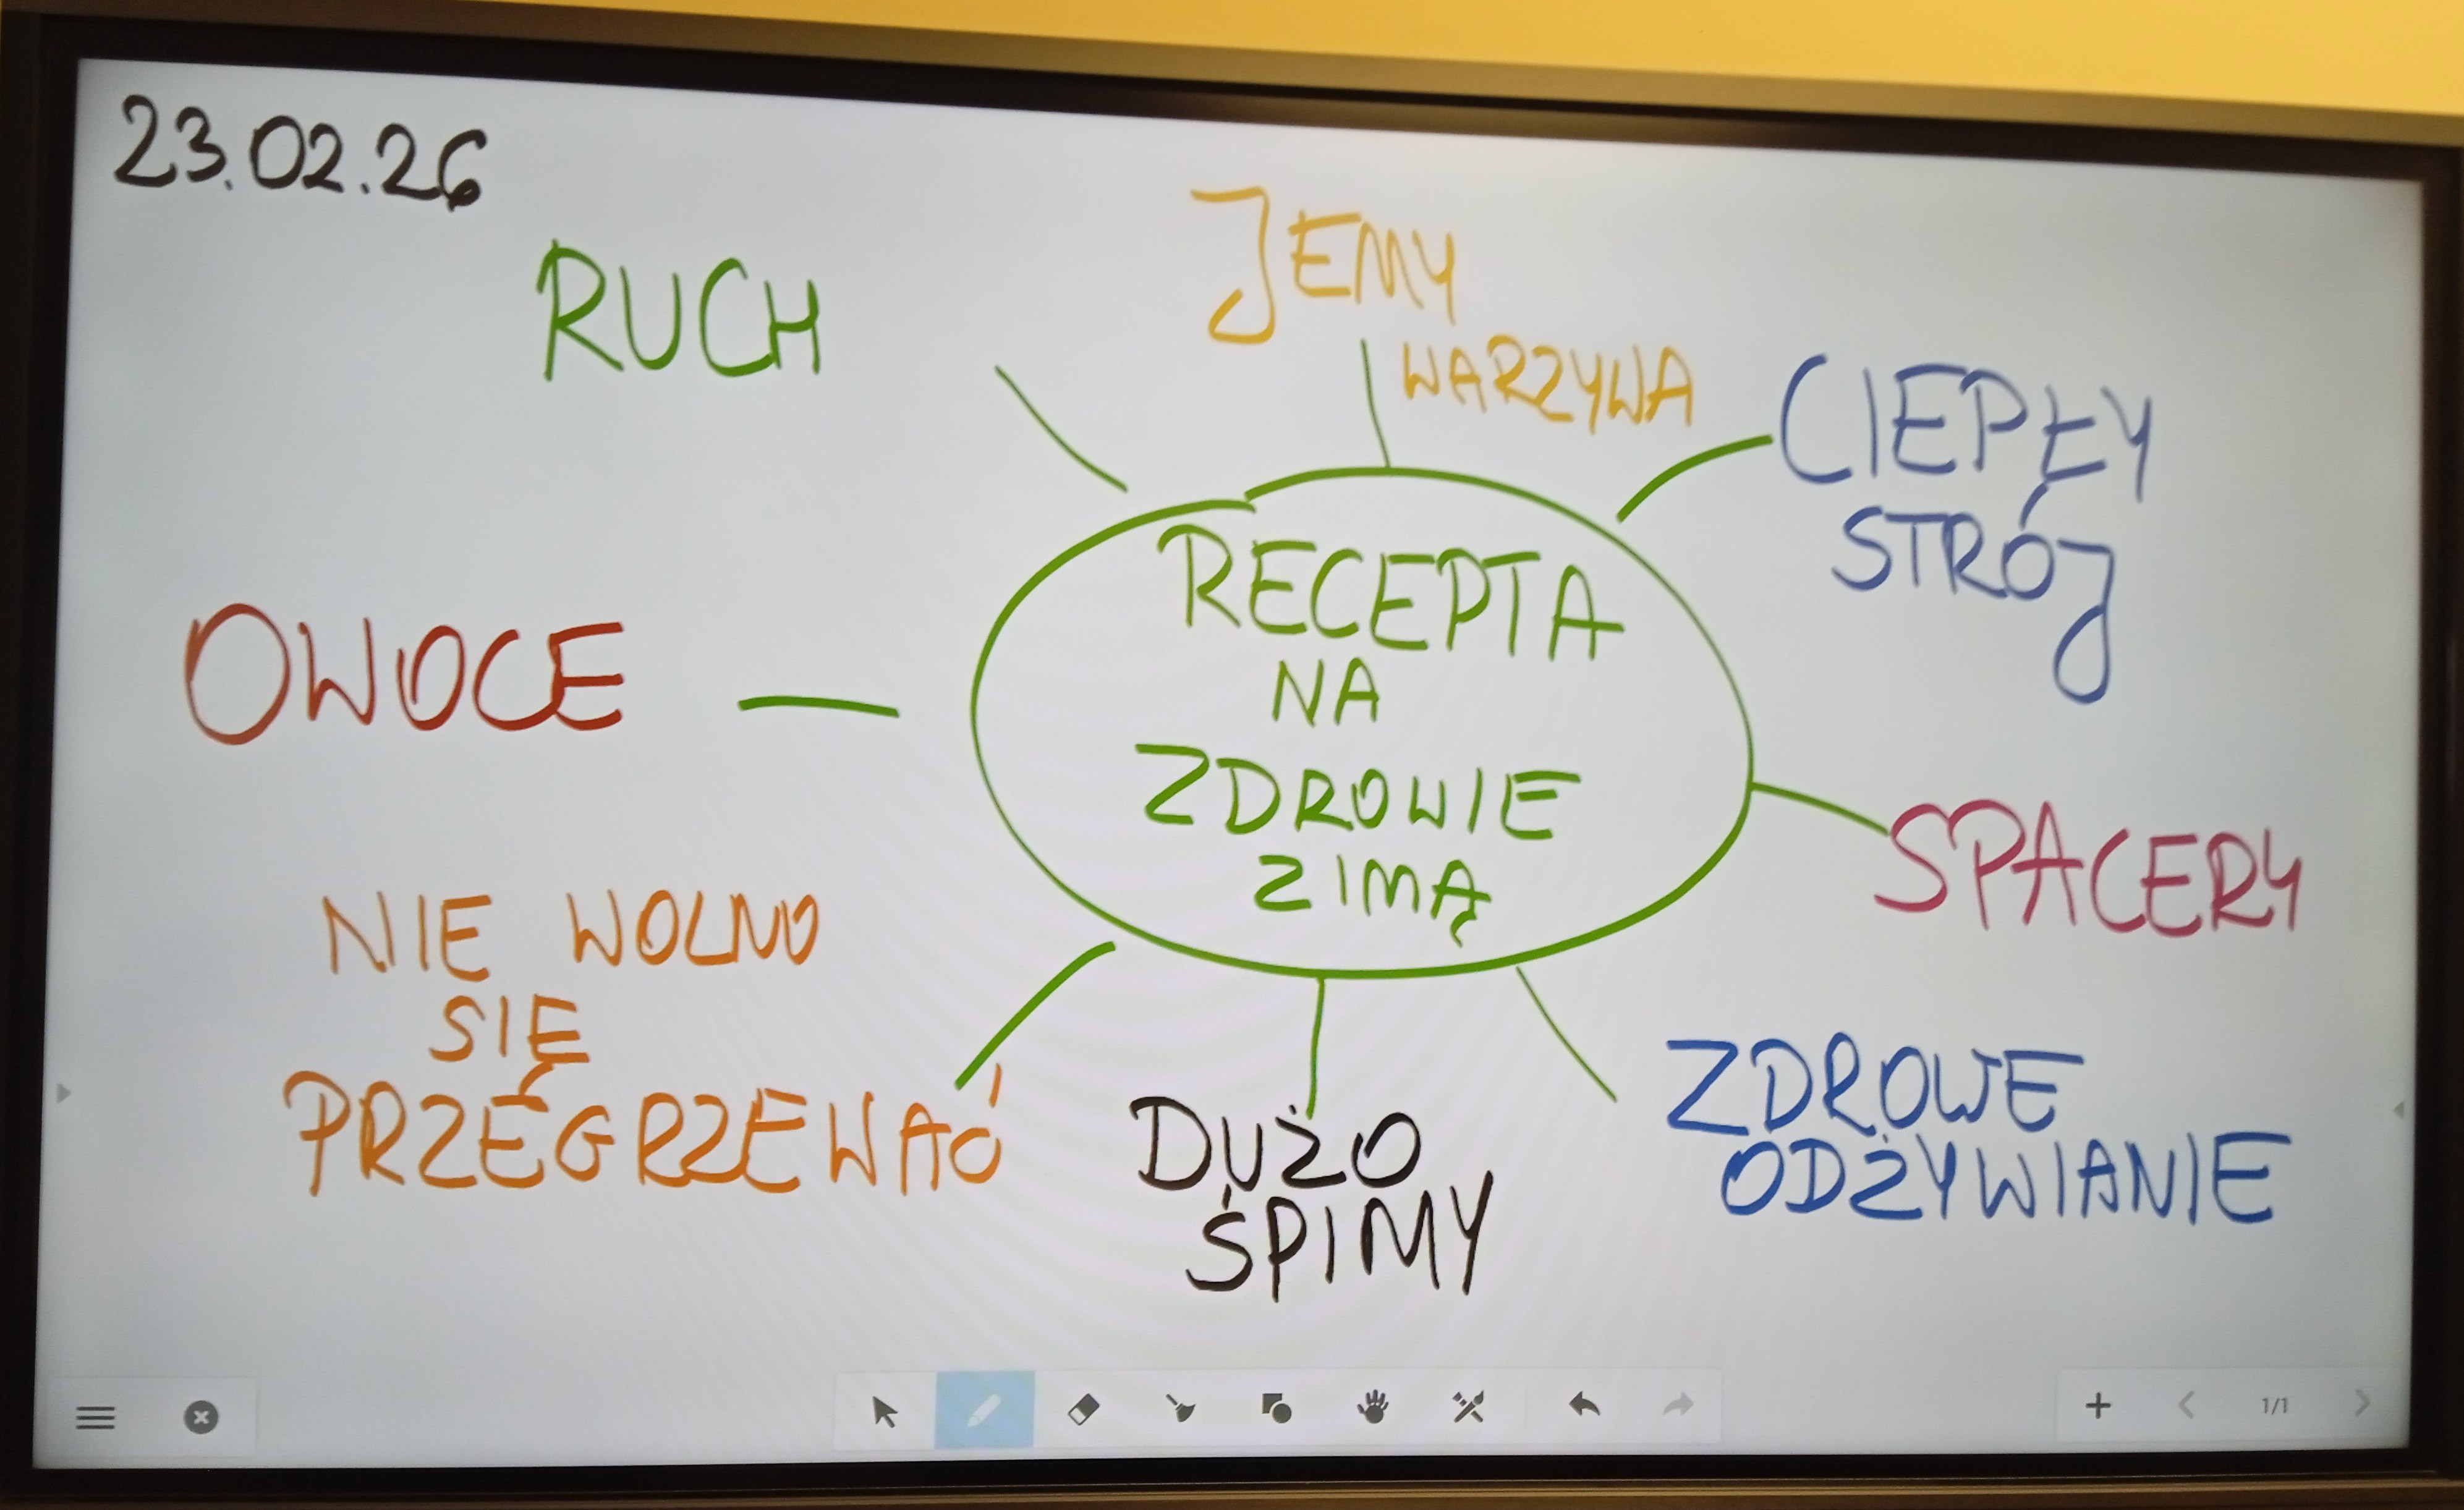 23.02.26
RUCH
JEMY
WARZYWA
CIEPŁY
STRÓJ
OWOCE
RECEPTA
NA
ZDROWIE
ZIMĄ
SPACERY
NIE WOLNO
SIĘ
PRZEGRZEWAĆ
DUŻO
ŚPIMY
ZDROWE
ODŻYWIANIE
1/1